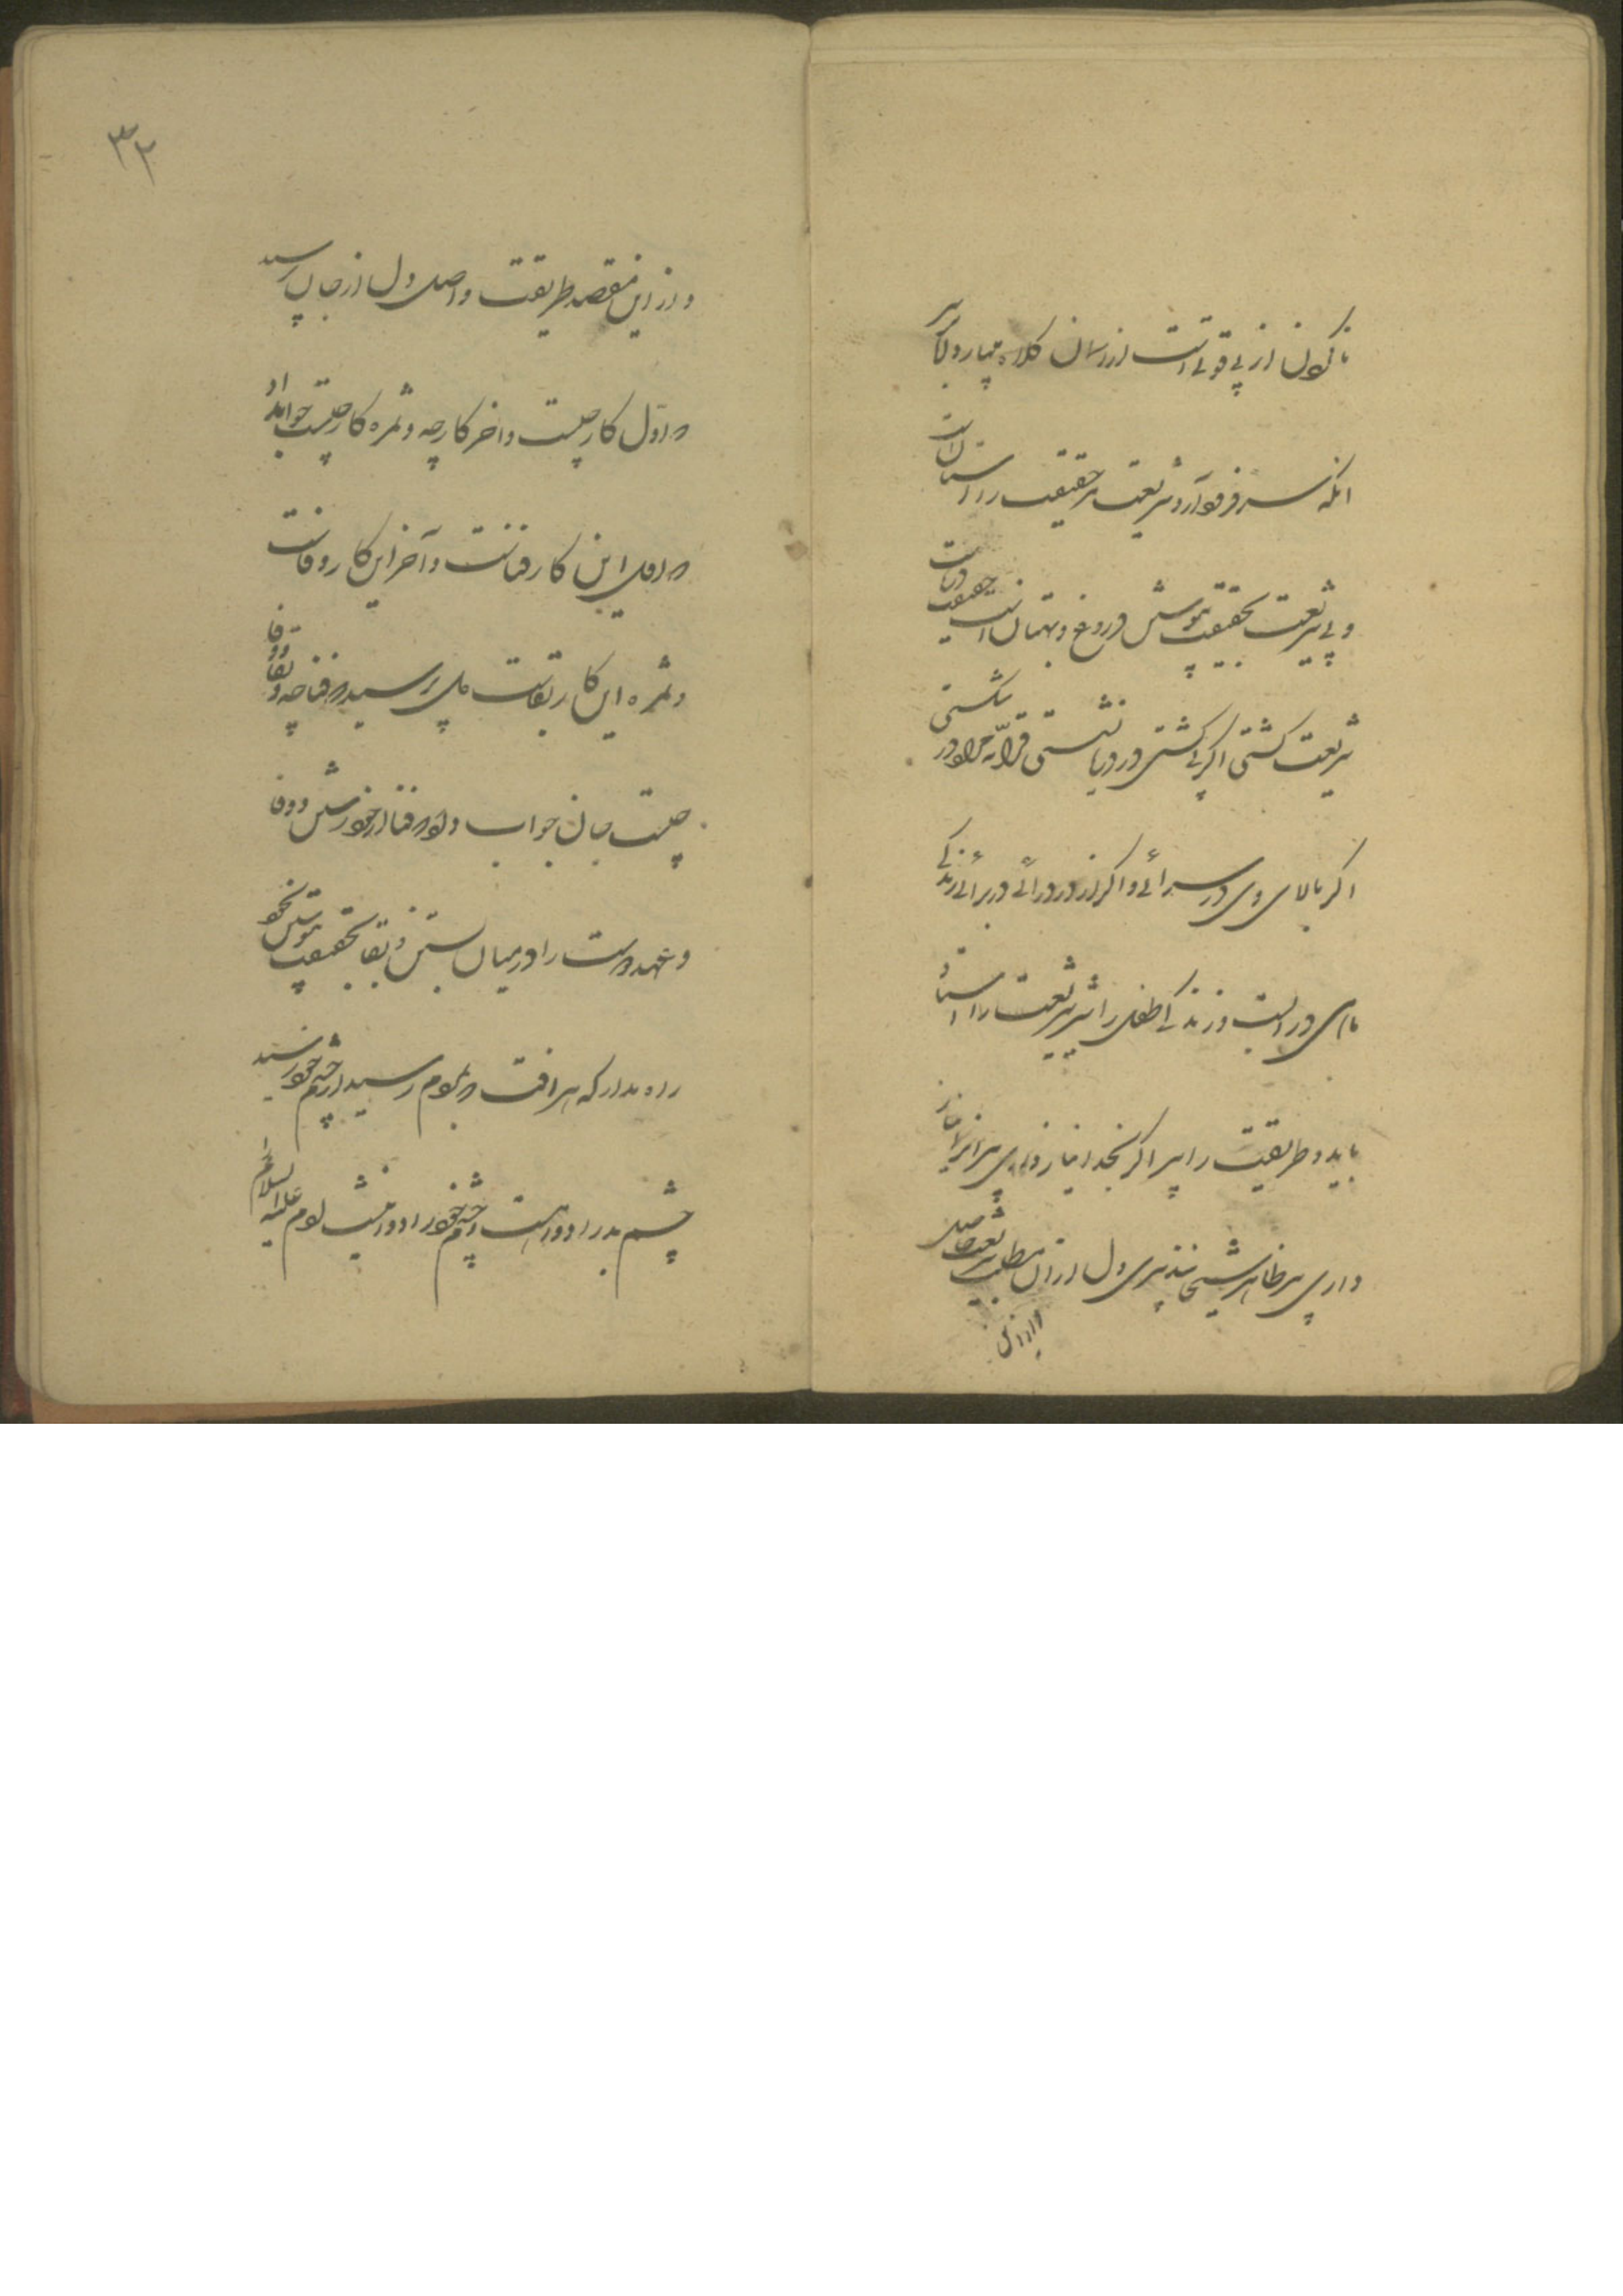 تا کون از بی قوتی است از رسان کلاه میبار و بکا سر
انکه سر فرو آرد شریعت مر حقیقت را آستان است
و بی شریعت بحقیقت پیوستن دروغ و بهتان است حقیقت دریاست
شریعت کشتی اگر بی کشتی در دریا نشستی
اگر بالای وی در سرائی و اگر از در درائی در برائی زندکی
ماهی در آبست و زندکی طفل را شیر شریعت را استاد
باید و طریقت را پیر اگر بخدا نیاز داری
داری پیر ظاهر شیخ نپذیری دل از آن طلب شریعت حاصل
و از آن
۳۲
و از این مقصد طریقت واصل دل از جان پرسید
که اول کار چیست و اخر کار چه و ثمره کار چیست جواب داد
که اول این کار فناست و آخر این کار وفاست
و ثمره این کار بقاست دل پرسید که فنا چه و بقا و وفا
چیست جان جواب داد که فنا از خود رستن و وفا
و عهد دوست را در میان بستن و بقا بحقیقت پیوستن بخود
راه مدار که هر آفت که بمردم رسید از چشم خود رسید
چشم بد را دوا هست چشم خود را دوا نیست آدم علیه السلام را